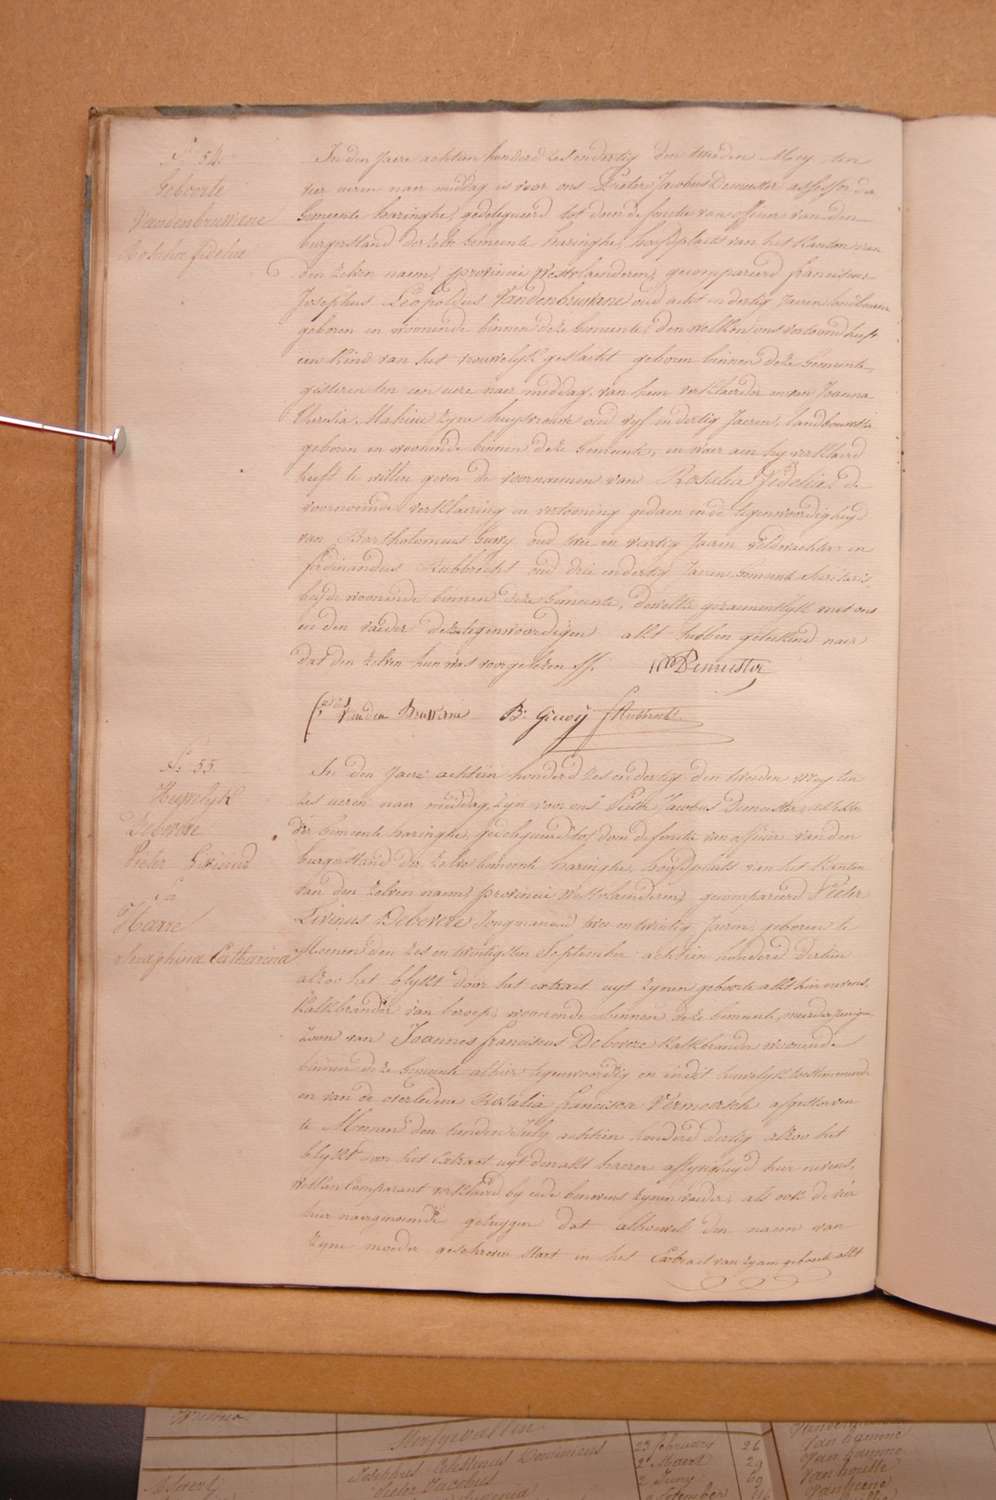 N° 54.
Geboorte
Vandenbussche
Rosalia fidelia
In den Jaere achtien honderd zes en dertig den tweeden Mey, ten
vier uren naer middag is voor ons Pieter Jacobus Demeester assessor der
Gemeente haringhe, gedelegueerd tot doen de functie van officier van den
burgerstand der zelve Gemeente haringhe, hoofdplaets van het Kanton van
den zelven naem, provincie Westvlaenderen, gecompareerd franciscus
Josephus Leopoldus Vandenbussche oud acht en dertig Jaeren
geboren en woonende binnen deze Gemeente, den welken ons vertoond heeft
een Kind van het vrouwelyk geslacht geboren binnen deze Gemeente,
gisteren ten een uere naer middag, van hem verklaerder en van Joanna
Theresia Mahieu zyne huysvrouwe oud vyf en dertig Jaeren, landbouwster
geboren en woonende binnen deze Gemeente, en waer aen hy verklaerd
heeft te willen geven de voornaemen van Rosalia fidelia de
voornoemde verklaering en vertooning gedaen in de tegenwoordigheyd
van Bartholomeus Guwy oud twee en veertig Jaeren veldwachter en
ferdinandus Rubbrecht oud drie en dertig Jaeren, Gemeente Secretaris
beyde woonende binnen deze Gemeente, dewelke gezaementlyk met ons
en den vaeder deze tegenwoordigen akt hebben geteekend naer
dat den zelven hun was voorgelezen
Demeester
Vanden Bussche B. Guwy f Rubbrecht
N° 55.
Huwelyk
Debovere
Pieter Livinus
En
Harre
Seraphina Catharina
In den Jaere achtien honderd zes en dertig den tweeden Mey ten
zes ueren naer middag, zyn voor ons Pieter Jacobus Demeester, assessor
der Gemeente haringhe, gedelegueerd tot doen de functie van officier van den
burgerstand der zelve Gemeente haringhe, hoofdplaets van het Kanton
van den zelven naem, provincie Westvlaenderen, gecompareerd Pieter
Livinus Debovere Jongman oud twee en twintig Jaeren, geboren te
Meenen den zes en twintigsten September achtien honderd dertien
alzoo het blykt door het extract uyt zynen geboorte akt hier nevens,
Kalkbrander van beroep, woonende binnen deze Gemeente, meerderjaerigen
zoon van Joannes franciscus Debovere Kalkbrander woonende
binnen deze Gemeente alhier tegenwoordig en in dit huwelyk toestemmende
en van de overledene Rosalia francisca Vermeersch afgestorven
te Meenen den tienden July achtien honderd dertig alzoo het
blykt door het Extract uyt den akt haerer aflyvigheyd hier nevens,
welken Comparant verklaerd by eede benevens zynen vaeder, als ook de vier
hier naergenoemde getuygen dat alhoewel den naem van
zyne moeder geschreven staet in het Extract van zynen geboorte akt
Josephus Celestinus Dominicus
Pieter Jacobus
23 february
2 Maert
2 Juny
September
26
29
69
Van hamme